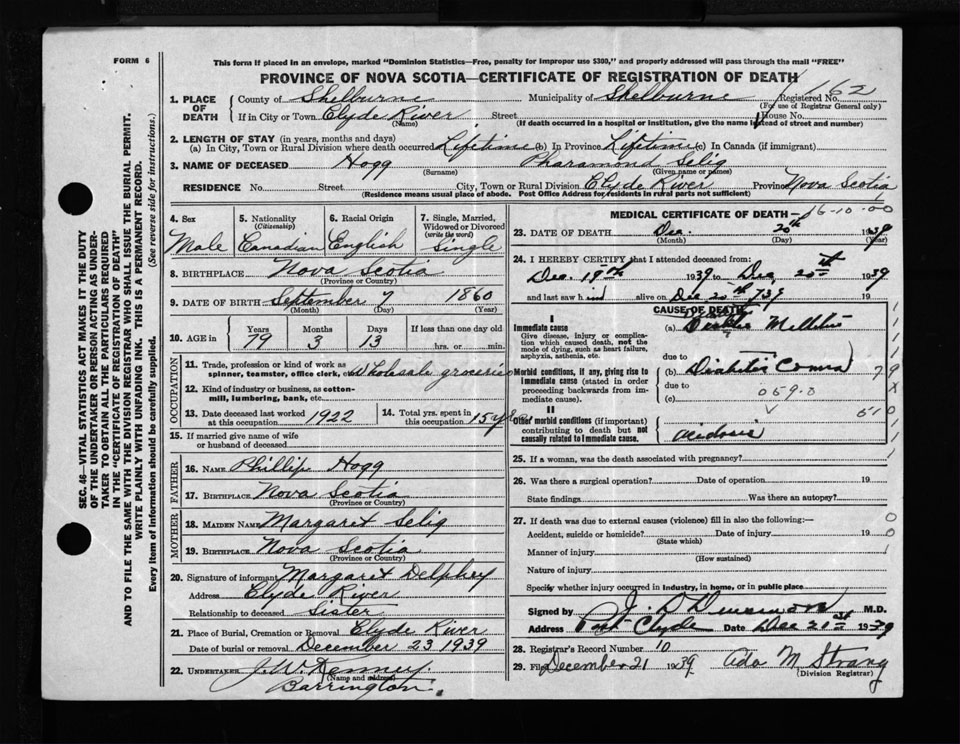 FORM 6
This form if placed in an envelope, marked "Dominion Statistics—Free, penalty for improper use $300," and properly addressed will pass through the mail "FREE"
PROVINCE OF NOVA SCOTIA—CERTIFICATE OF REGISTRATION OF DEATH
1. PLACE OF DEATH County of Shelburne Municipality of Shelburne Registered No. 162
(For use of Registrar General only)
If in City or Town Clyde River Street House No.
(Name) (If death occurred in a hospital or institution, give the name instead of street and number)
2. LENGTH OF STAY (in years, months and days)
(a) In City, Town or Rural Division where death occurred Lifetime (b) In Province Lifetime (c) In Canada (if immigrant)
3. NAME OF DECEASED Hogg Pharamond Selig
(Surname) (Given name or names)
RESIDENCE No. Street City, Town or Rural Division Clyde River Province Nova Scotia
(Residence means usual place of abode. Post Office Address for residents in rural parts not sufficient)
4. Sex 5. Nationality (Citizenship) 6. Racial Origin 7. Single, Married, Widowed or Divorced (write the word)
Male Canadian English Single
8. BIRTHPLACE Nova Scotia
(Province or Country)
9. DATE OF BIRTH September 7 1860
(Month) (Day) (Year)
10. AGE in Years Months Days If less than one day old
79 3 13 hrs. or min.
OCCUPATION
11. Trade, profession or kind of work as spinner, teamster, office clerk, etc. Wholesale groceries
12. Kind of industry or business, as cotton-mill, lumbering, bank, etc.
13. Date deceased last worked at this occupation 1922 14. Total yrs. spent in this occupation 15 yrs
15. If married give name of wife or husband of deceased
FATHER
16. NAME Phillip Hogg
17. BIRTHPLACE Nova Scotia
(Province or Country)
MOTHER
18. MAIDEN NAME Margaret Selig
19. BIRTHPLACE Nova Scotia
(Province or Country)
20. Signature of informant Margaret Delphey
Address Clyde River
Relationship to deceased Sister
21. Place of Burial, Cremation or Removal Clyde River
Date of burial or removal December 23 1939
22. UNDERTAKER J. W. Kenney
(Name and address)
Barrington.
MEDICAL CERTIFICATE OF DEATH 16-10-00
23. DATE OF DEATH Dec. 20th 1939
(Month) (Day) (Year)
24. I HEREBY CERTIFY that I attended deceased from:
Dec. 19th 1939 to Dec. 20th 1939
and last saw him alive on Dec 20th 739 19
CAUSE OF DEATH
I
Immediate cause
Give disease, injury or complication which caused death, not the mode of dying, such as heart failure, asphyxia, asthenia, etc.
(a)
due to
Morbid conditions, if any, giving rise to immediate cause (stated in order proceeding backwards from immediate cause).
(b) Diabetis Coma
due to 059.0
(c)
II
Other morbid conditions (if important) contributing to death but not causally related to immediate cause.
acidosis
25. If a woman, was the death associated with pregnancy?
26. Was there a surgical operation? Date of operation 19
State findings Was there an autopsy?
27. If death was due to external causes (violence) fill in also the following:—
Accident, suicide or homicide? Date of injury 19
(State which)
Manner of injury
(How sustained)
Nature of injury
Specify whether injury occurred in industry, in home, or in public place
Signed by M.D.
Address Port Clyde Date Dec 21st 1939
28. Registrar's Record Number 10
29. Filed December 21 1939 Ada M. Strang
(Division Registrar)
SEC. 46—VITAL STATISTICS ACT MAKES IT THE DUTY
OF THE UNDERTAKER OR PERSON ACTING AS UNDER-
TAKER TO OBTAIN ALL THE PARTICULARS REQUIRED
IN THE "CERTIFICATE OF REGISTRATION OF DEATH"
AND TO FILE THE SAME WITH THE DIVISION REGISTRAR WHO SHALL ISSUE THE BURIAL PERMIT.
WRITE PLAINLY WITH UNFADING INK. THIS IS A PERMANENT RECORD.
Every item of information should be carefully supplied. (See reverse side for instructions.)